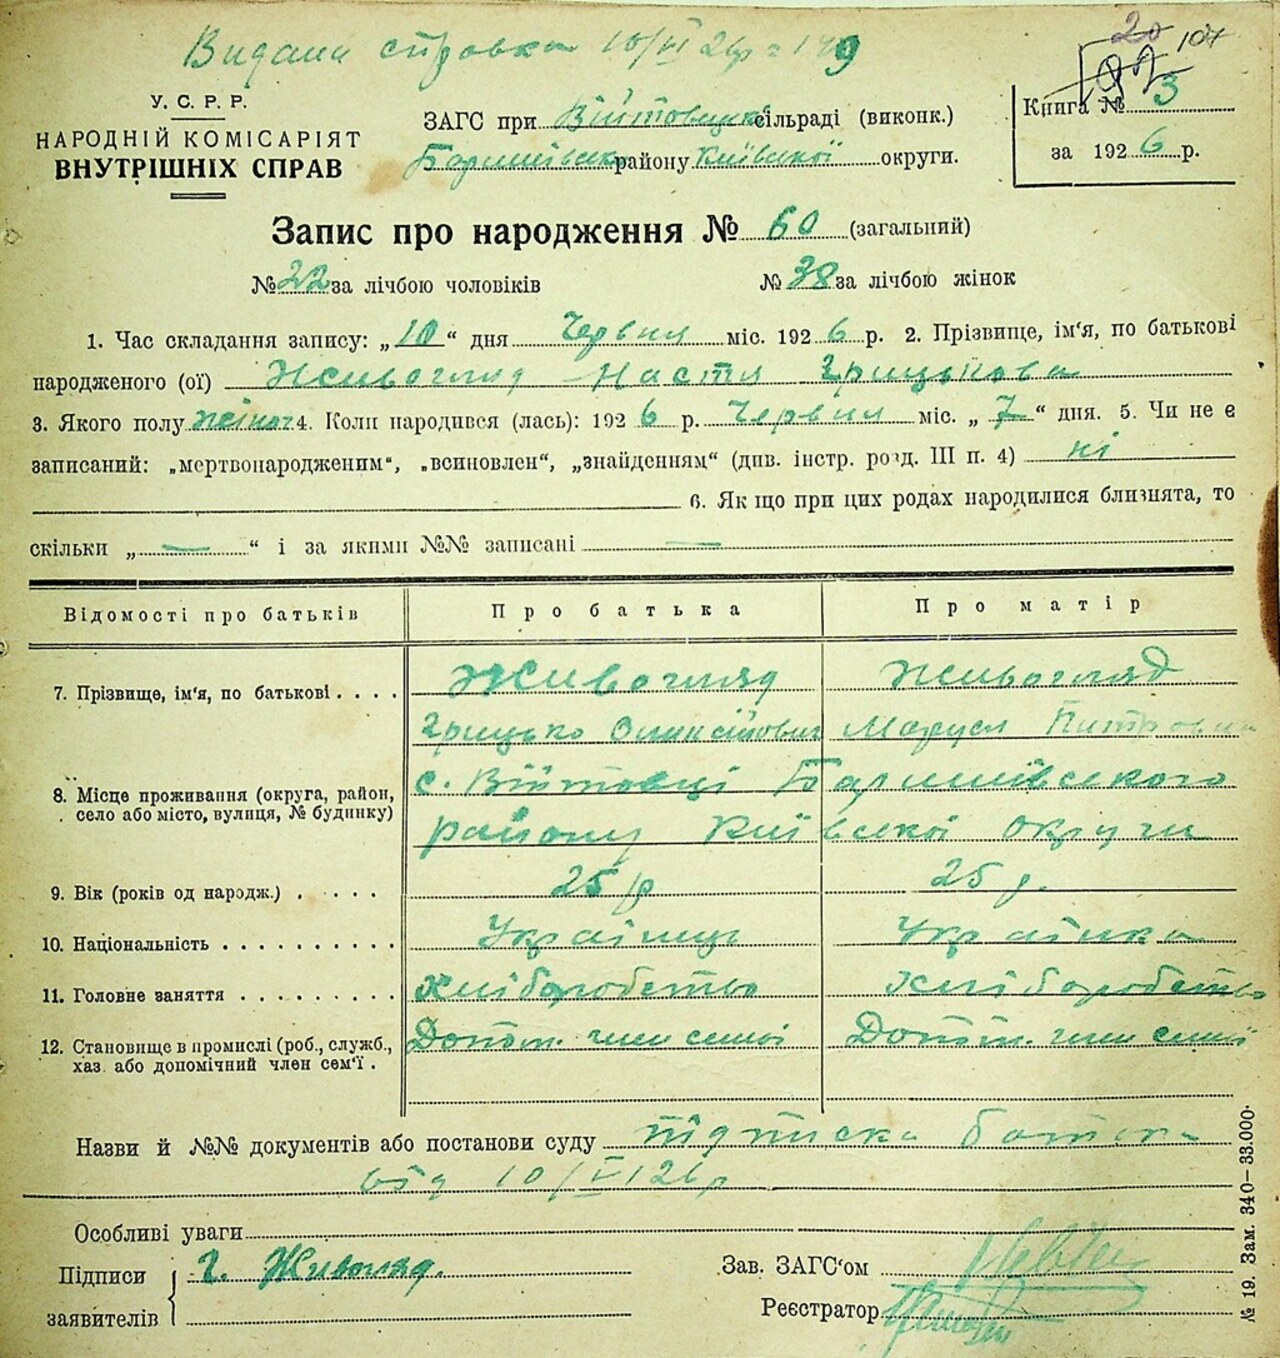 Видана справка 10/VI 26р
20 104
У. С. Р. Р.
НАРОДНІЙ КОМІСАРІЯТ
ВНУТРІШНІХ СПРАВ
ЗАГС при Війтовецьк сільраді (виконк.)
Баришівськ району Київської округи.
Книга № 3
за 1926 р.
Запис про народження № 60 (загальний)
№ 22 за лічбою чоловіків № 38 за лічбою жінок
1. Час складання запису: „10“ дня Червня міс. 1926 р. 2. Прізвище, ім‘я, по батькові
народженого (ої) Живогляд Настя Грицькова
3. Якого полу жіноч 4. Коли народився (лась): 1926 р. Червня міс. „7“ дня. 5. Чи не є
записаний: „мертвонародженим“, „всиновлен“, „знайденням“ (див. інстр. розд. III п. 4) ні
6. Як що при цих родах народилися близнята, то
скільки „—“ і за якими №№ записані —
Відомості про батьків Про батька Про матір
7. Прізвище, ім‘я, по батькові . . . . Живогляд Живогляд
Грицько Маруся Питровна
8. Місце проживання (округа, район, село або місто, вулиця, № будинку) с. Війтовці Баришівського
району Київської округи
9. Вік (років од народж.) . . . . . 25 р 25 р.
10. Національність . . . . . . . . . . Українць Українка
11. Головне заняття . . . . . . . . . Хліборобство Хліборобство
12. Становище в промислі (роб., служб., хаз. або допомічний член сем‘ї . Допом. член семї Допом. член семї
Назви й №№ документів або постанови суду підписка батька
від 10/VI 26р
Особливі уваги
Підписи заявителів Г. Живогляд.
Зав. ЗАГС‘ом
Реєстратор
№ 19. Зам. 340—33.000.